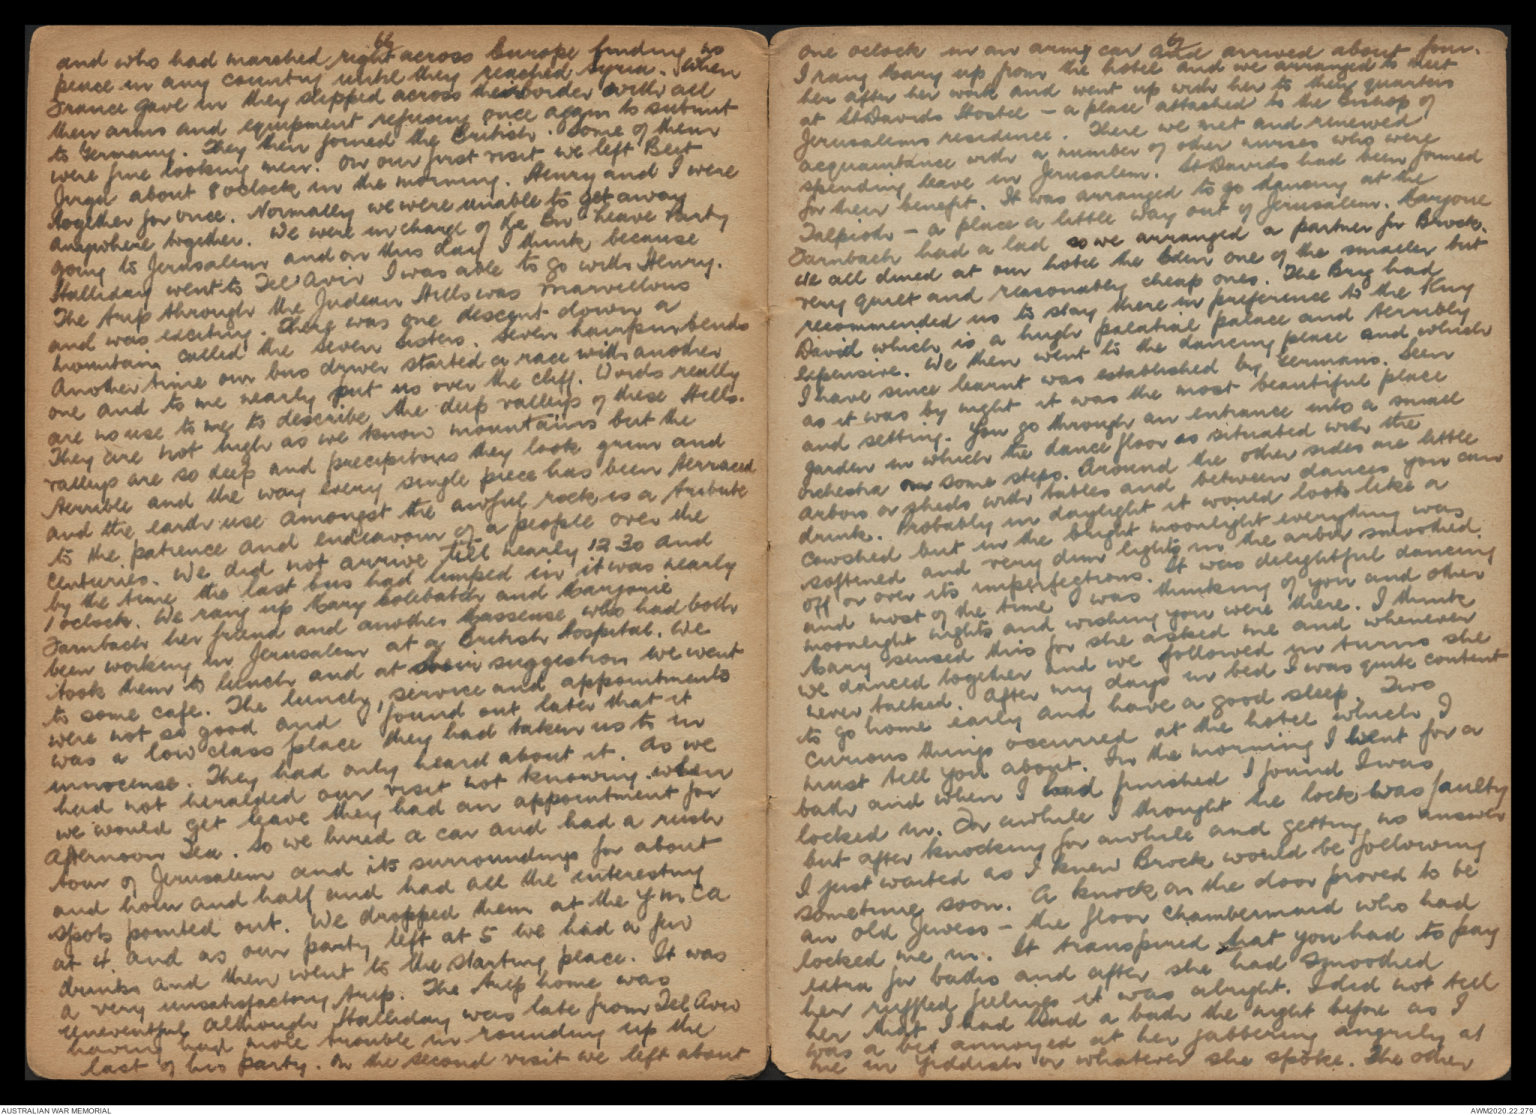 66
and who had marched right across Europe finding no
peace in any country until they reached Syria. When
France gave in they slipped across their border with all
their arms and equipment refusing once again to submit
to Germany. They then joined the British. Some of them
were fine looking men. On our first visit we left Beit
Jirja about 8 oclock in the morning. Henry and I were
together for once. Normally we were unable to get away
anywhere together. We were in charge of the Bn leave Party
going to Jerusalem and on this day I think because
Halliday went to Tel Aviv I was able to go with Henry.
The trip through the Judean Hills was marvellous
and was exciting. There was one descent down a
mountain called the Seven Sisters. Seven hairpin bends
Another time our bus driver started a race with another
one and to me nearly put us over the cliff. Words really
are no use to me to describe the deep valleys of these Hills.
They are not high as we know mountains but the
valleys are so deep and precipitous they look grim and
terrible and the way every single piece has been terraced
and the earth use amongst the awful rock is a tribute
to the patience and endeavour of a people over the
centuries. We did not arrive till nearly 12 30 and
by the time the last bus had limped in it was nearly
1 oclock. We rang up Mary Colebatch and Marjorie
Farmbach her friend and another Massense who had both
been working in Jerusalem at a British Hospital. We
took them to lunch and at their suggestion we went
to some cafe. The lunch, service and appointments
were not so good and I found out later that it
was a low class place they had taken us to in
innocense. They had only heard about it. As we
had not heralded our visit not knowing when
we would get leave they had an appointment for
afternoon Tea. So we hired a car and had a rush
tour of Jerusalem and its surroundings for about
and hour and half and had all the interesting
spots pointed out. We dropped them at the Y M C a
at it and as our party left at 5 we had a few
drinks and then went to the starting place. It was
a very unsatisfactory trip. The trip home was
uneventful although Halliday was late from Tel Aviv
having had more trouble in rounding up the
last of his party. On the second visit we left about
67
one oclock in an army car and arrived about four.
I rang Mary up from the hotel and we arranged to meet
her after her work and went up with her to their quarters
at St Davids Hostel – a place attached to the Bishop of
Jerusalems residence. There we met and renewed
acquaintance with a number of other nurses who were
spending leave in Jerusalem. St Davids had been formed
for their benefit. It was arranged to go dancing at the
Talpioth – a place a little way out of Jerusalem. Maryone
Farnbach had a lad so we arranged a partner for Brock.
We all dined at our hotel the Eden one of the smaller but
very quiet and reasonably cheap ones. The Brig had
recommended us to stay there in preference to the King
David which is a hugh palatial palace and terribly
expensive. We then went to the dancing place and which
I have since learnt was established by Germans. Seen
as it was by night it was the most beautiful place
and setting. You go through an entrance into a small
garden in which the dance floor is situated with the
orchestra on some steps. Around the other sides are little
arbors or sheds with tables and between dances you can
drink. Probably in daylight it would look like a
cowshed but in the bright moonlight everything was
softened and very dim lights in the arbor smoothed
off or over its imperfections. It was delightful dancing
and most of the time I was thinking of you and other
moonlight nights and wishing you were there. I think
Mary sensed this for she asked me and whenever
we danced together and we followed in turns she
never talked. After my days in bed I was quite content
to go home early and have a good sleep. Two
curious things occurred at the hotel which I
must tell you about. In the morning I went for a
bath and when I had finished I found I was
locked in. For awhile I thought the lock was faulty
but after knocking for awhile and getting no answer
I just waited as I knew Brock would be following
sometime soon. A knock on the door proved to be
an old Jewess – the floor chambermaid who had
locked me in. It transpired that you had to pay
extra for baths and after she had smoothed
her ruffled feelings it was alright. I did not tell
her that I had had a bath the night before as I
was a bit annoyed at her jabbering angrily at
me in Yiddish or whatever she spoke. The other
AUSTRALIAN WAR MEMORIAL
AWM2020.22.279